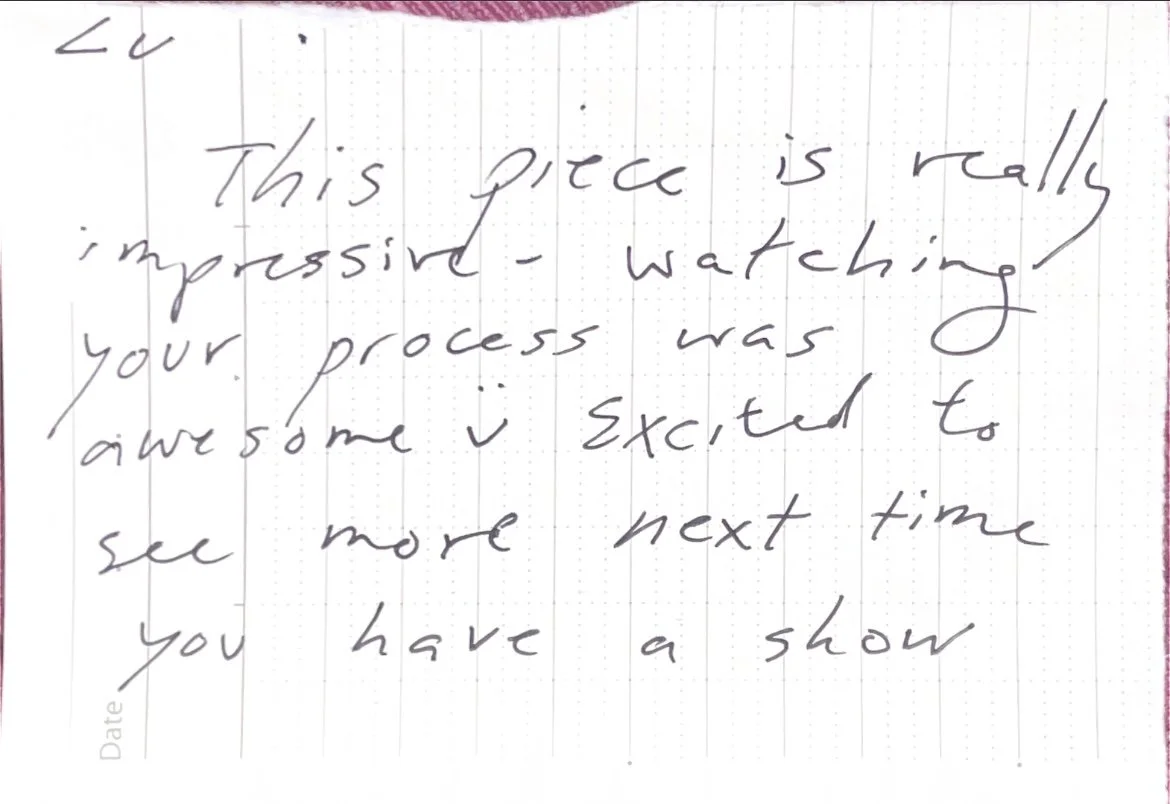 This piece is really
impressive - watching
your process was
awesome ü Excited to
see more next time
you have a show
Date